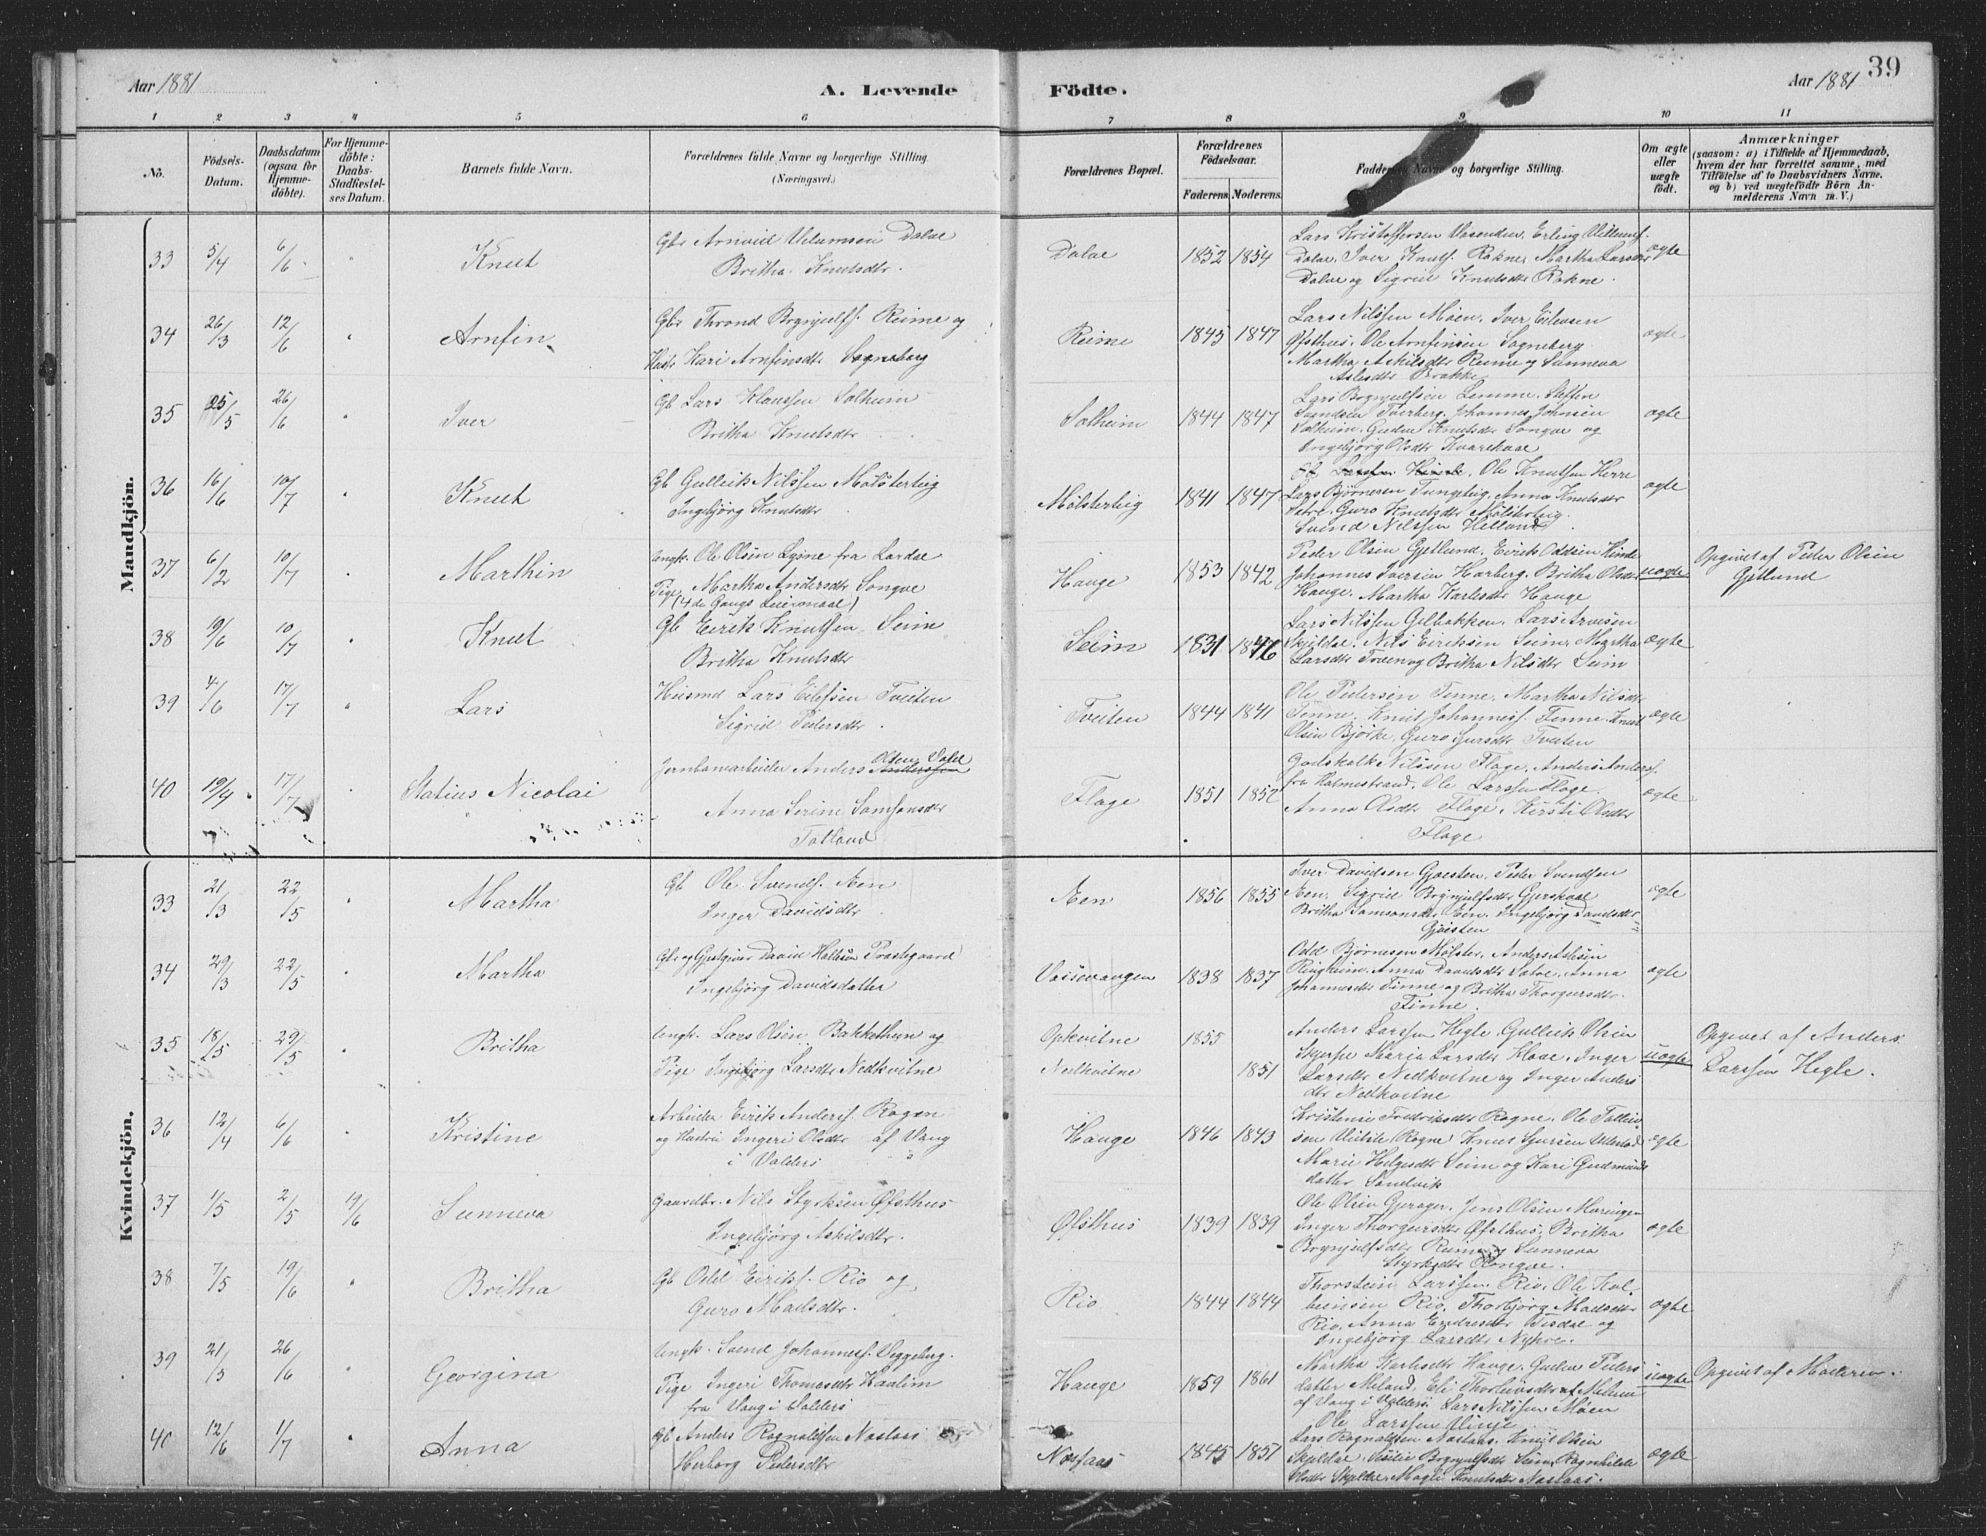 Aar 1881
A. Levende
Födte.
Aar 1881
39
1 2 3 4 5 6 7 8 9 10 11
No.
Födsels-
Datum.
Daabsdatum
(ogsaa för
Hjemme-
döbte).
For Hjemme-
döbte:
Daabs-
Stadfæstel-
ses Datum.
Barnets fulde Navn.
Forældrenes fulde Navne og borgerlige Stilling.
(Næringsvei.)
Forældrenes Bopæl.
Forældrenes
Födselsaar.
Faderens Moderens.
Faddernes Navne og borgerlige Stilling.
Om ægte
eller
uægte
født.
Anmærkninger
(saasom: a) i Tilfælde af Hjemmedaab,
hvem der har forrettet samme, med
Tilföielse af to Daabsvidners Navne.
og b) ved uægtefödte Börn An-
melderens Navn m. V.)
Mandkjön.
33 5/4 6/6 " Knut
Gbr Arnvid Dalve
Britha Knutsdtr.
Dalve 1852 1854
Lars Kristoffersen Erling
Dalve. Iver Knuts. Rokne, Martha Larsdtr
Dalve og Sigrid Knutsdtr Rokne.
ægte
34 26/3 12/6 " Arnfin
Gbr Thrond Brynjulfs. Reime og
Hustr Kari Arnfinsdtr Sogneberg
Reime 1845 1847
Lars Nilssen Möen. Iver
Øfsthus. Ole Arnfinsen Sogneberg
Martha Askilsdtr Reime og Sunneva
Brække
ægte
35 25/5 26/6 " Iver
Gb Lars Klaussen Solheim
Britha Knutsdtr
Solheim 1844 1847
Lars Brynjulfsen Lemme. Steffen
Svendsen Tverberg. Johannes Johnsen
Solheim. Knutsdtr Songve og
Ingebjörg Olsdtr
ægte
36 16/6 10/7 " Knut
Gb Gulleik Nilssen Mölsterteig
Ingebjörg Knutsdtr
Mölsterteig 1841 1847
Ole Knutsen Herre
Lars Björnesen Anna Knutsdtr
Guro Knutsdtr Mölsterteig
Svend Nilssen Helland
ægte
37 6/2 10/7 " Marthin
Ungk. Ole Olsen Lysne fra Lærdal
Pige Martha Andersdtr Songve
(4de Gangs Leiermaal)
Hauge 1853 1842
Peder Olsen Gjelland, Eirik Oddsen Hinde
Johannes Iversen Horberg, Britha Olsdtr
Hauge, Martha Karlsdtr Hauge
uægte
Opgivet af Peder Olsen
Gjelland
38 19/6 10/7 " Knut
Gb Eirik Knutsen Seim
Britha Knutsdtr
Seim 1831 1846
Lars Nilssen Gilbakken. Lars
Skjeldal. Nils Eiriksen Seim, Martha
Larsdtr Tveen og Britha Nilsdtr Seim
ægte
39 4/6 17/7 " Lars
Husmd Lars Eilefsen Tveiten
Sigrid Pedersdtr
Tveiten 1844 1841
Ole Pedersen Tenne. Martha Nilsdtr
Tenne. Knut Johanness. Finne. Knut
Olsen Björke, Guro Tveiten
ægte
40 19/4 17/7 " Statius Nicolai
Jernbanearbeider Anders Olsen
Anna Serine Samsonsdtr
Totland
Flage 1851 1852
Godskalk Nilssen Flage. Anders Anders.
fra Holmestrand. Ole Larssen Flage.
Anna Olsdtr Flage, Kirsti Olsdtr
Flage
ægte
Kvindekjön.
33 21/3 22/5 " Martha
Gb Ole Svends. Æen
Inger Davidsdtr
Æen 1856 1855
Iver Davidsen Gjøsten. Peder Svendsen
Æen. Sigrid Brynjulfsdtr
Britha Samsonsdtr Æen. Ingebjörg Davidsdtr
Gjøsten
ægte
34 29/3 22/5 " Martha
Gbr og Gjestgiver David Præstegaard
Ingebjörg Davidsdatter
Vossevangen 1838 1837
Odd Björnesen Mölster, Anders
Ringheim. Anna Davidsdtr Anna
Johannesdtr Finne og Britha Thorgersdtr.
Finne
ægte
35 18/5 29/5 " Britha
Ungk. Lars Olsen Bakkethun og
Pige Ingebjörg Larsdtr Nedkvitne
Opkvitne 1855
Nedkvitne 1851
Anders Larssen Hegle, Gulleik Olsen
Skjerpe Maria Larsdtr Inger
Larsdtr Nedkvitne og Inger Anders
dtr Nedkvitne
uægte
Opgivet af Anders
Larssen Hegle.
36 12/4 6/6 " Kristine
Arbeider Eirik Anders. Rogen
og Hustru Ingeri Olsdtr af Vang
i Valders
Hauge 1846 1843
Kristine Fredriksdtr Rogne. Ole
Rogne Knut
Marie Helgesdtr Seim og Kari Gudmunds
datter Sandvik
ægte
37 1/5 2/5 19/6 Sunneva
Gaardbr. Nils Styrksen Øfsthus
Ingebjörg Askilsdtr.
Øfsthus 1839 1839
Ole Olsen Gjerager. Jens Olsen
Inger Thorgersdtr Øfsthus. Britha
Brynjulfsdtr Reime og Sunneva
Styrksdtr
ægte
38 7/5 19/6 " Britha
Gb Odd Eiriks. Rio og
Guro Madsdtr.
Rio 1844 1844
Thorstein Larssen Rio. Ole Kol-
beinsen Rio. Thorbjörg Madsdtr
Rio, Anna Endresdtr og
Ingebjörg Larsdtr Nykre.
ægte
39 21/3 26/6 " Georgina
Ungk. Svend Johanness.
Pige Ingeri Thomasdtr
fra Vang i Valders
Hauge 1859 1861
Martha Karlsdtr Hauge. Peders
datter
af Vang i Valders Lars Nilssen Möen
Ole Larssen Vinje
uægte
Opgivet af Moderen.
40 12/6 1/7 " Anna
Gb Anders Rognaldsen Nasfaas
Herborg Pedersdtr
Nasfaas 1845 1857
Lars Rognaldsen Nasfaas. Knut Olsen
Skjeldal. Brynjulfsdtr Seim, Rognhilde
Olsdtr Skjeldal Knutsdtr Nasfaas.
ægte